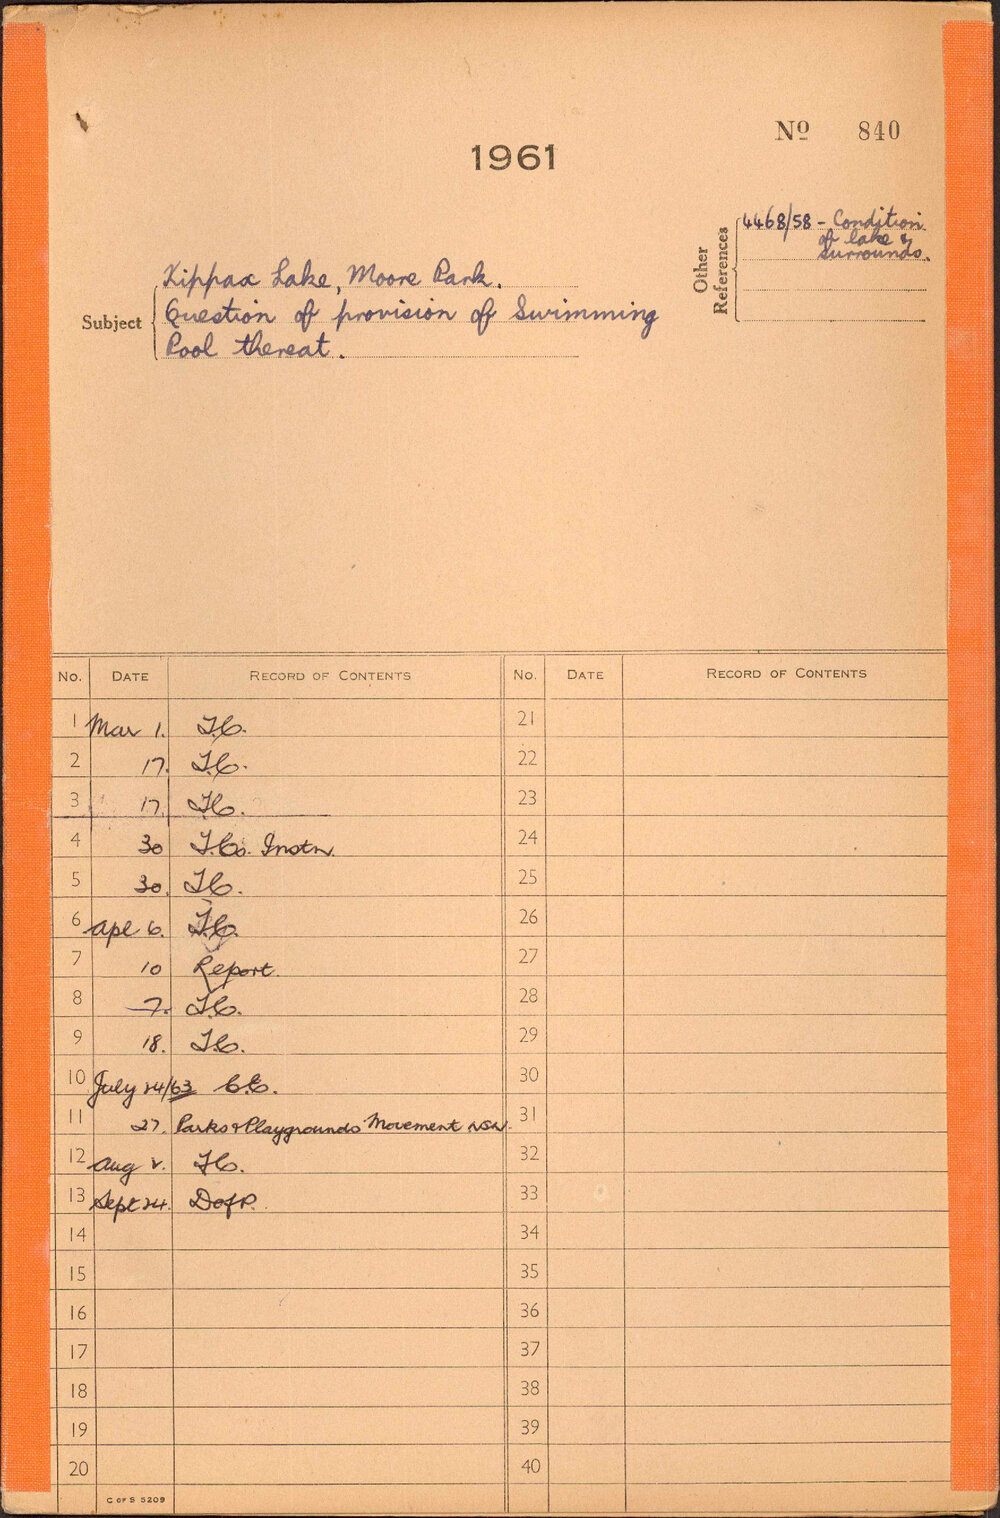 Nº 840
1961
Other References
4468/58 - Condition
of lake &
surrounds.
Subject
Kippax Lake, Moore Park.
Question of provision of Swimming
Pool thereat.
No. DATE RECORD OF CONTENTS No. DATE RECORD OF CONTENTS
1 Mar 1. T.C. 21
2 17. T.C. 22
3 17. T.C. 23
4 30 T.Cs. Instn. 24
5 30. T.C. 25
6 Apl 6. T.C. 26
7 10 Report. 27
8 7. T.C. 28
9 18. T.C. 29
10 July 24/63 C.E. 30
11 27. Parks & Playgrounds Movement NSW. 31
12 Aug 2. T.C. 32
13 Sept 24. DofP. 33
14 34
15 35
16 36
17 37
18 38
19 39
20 40
C OF S 5209